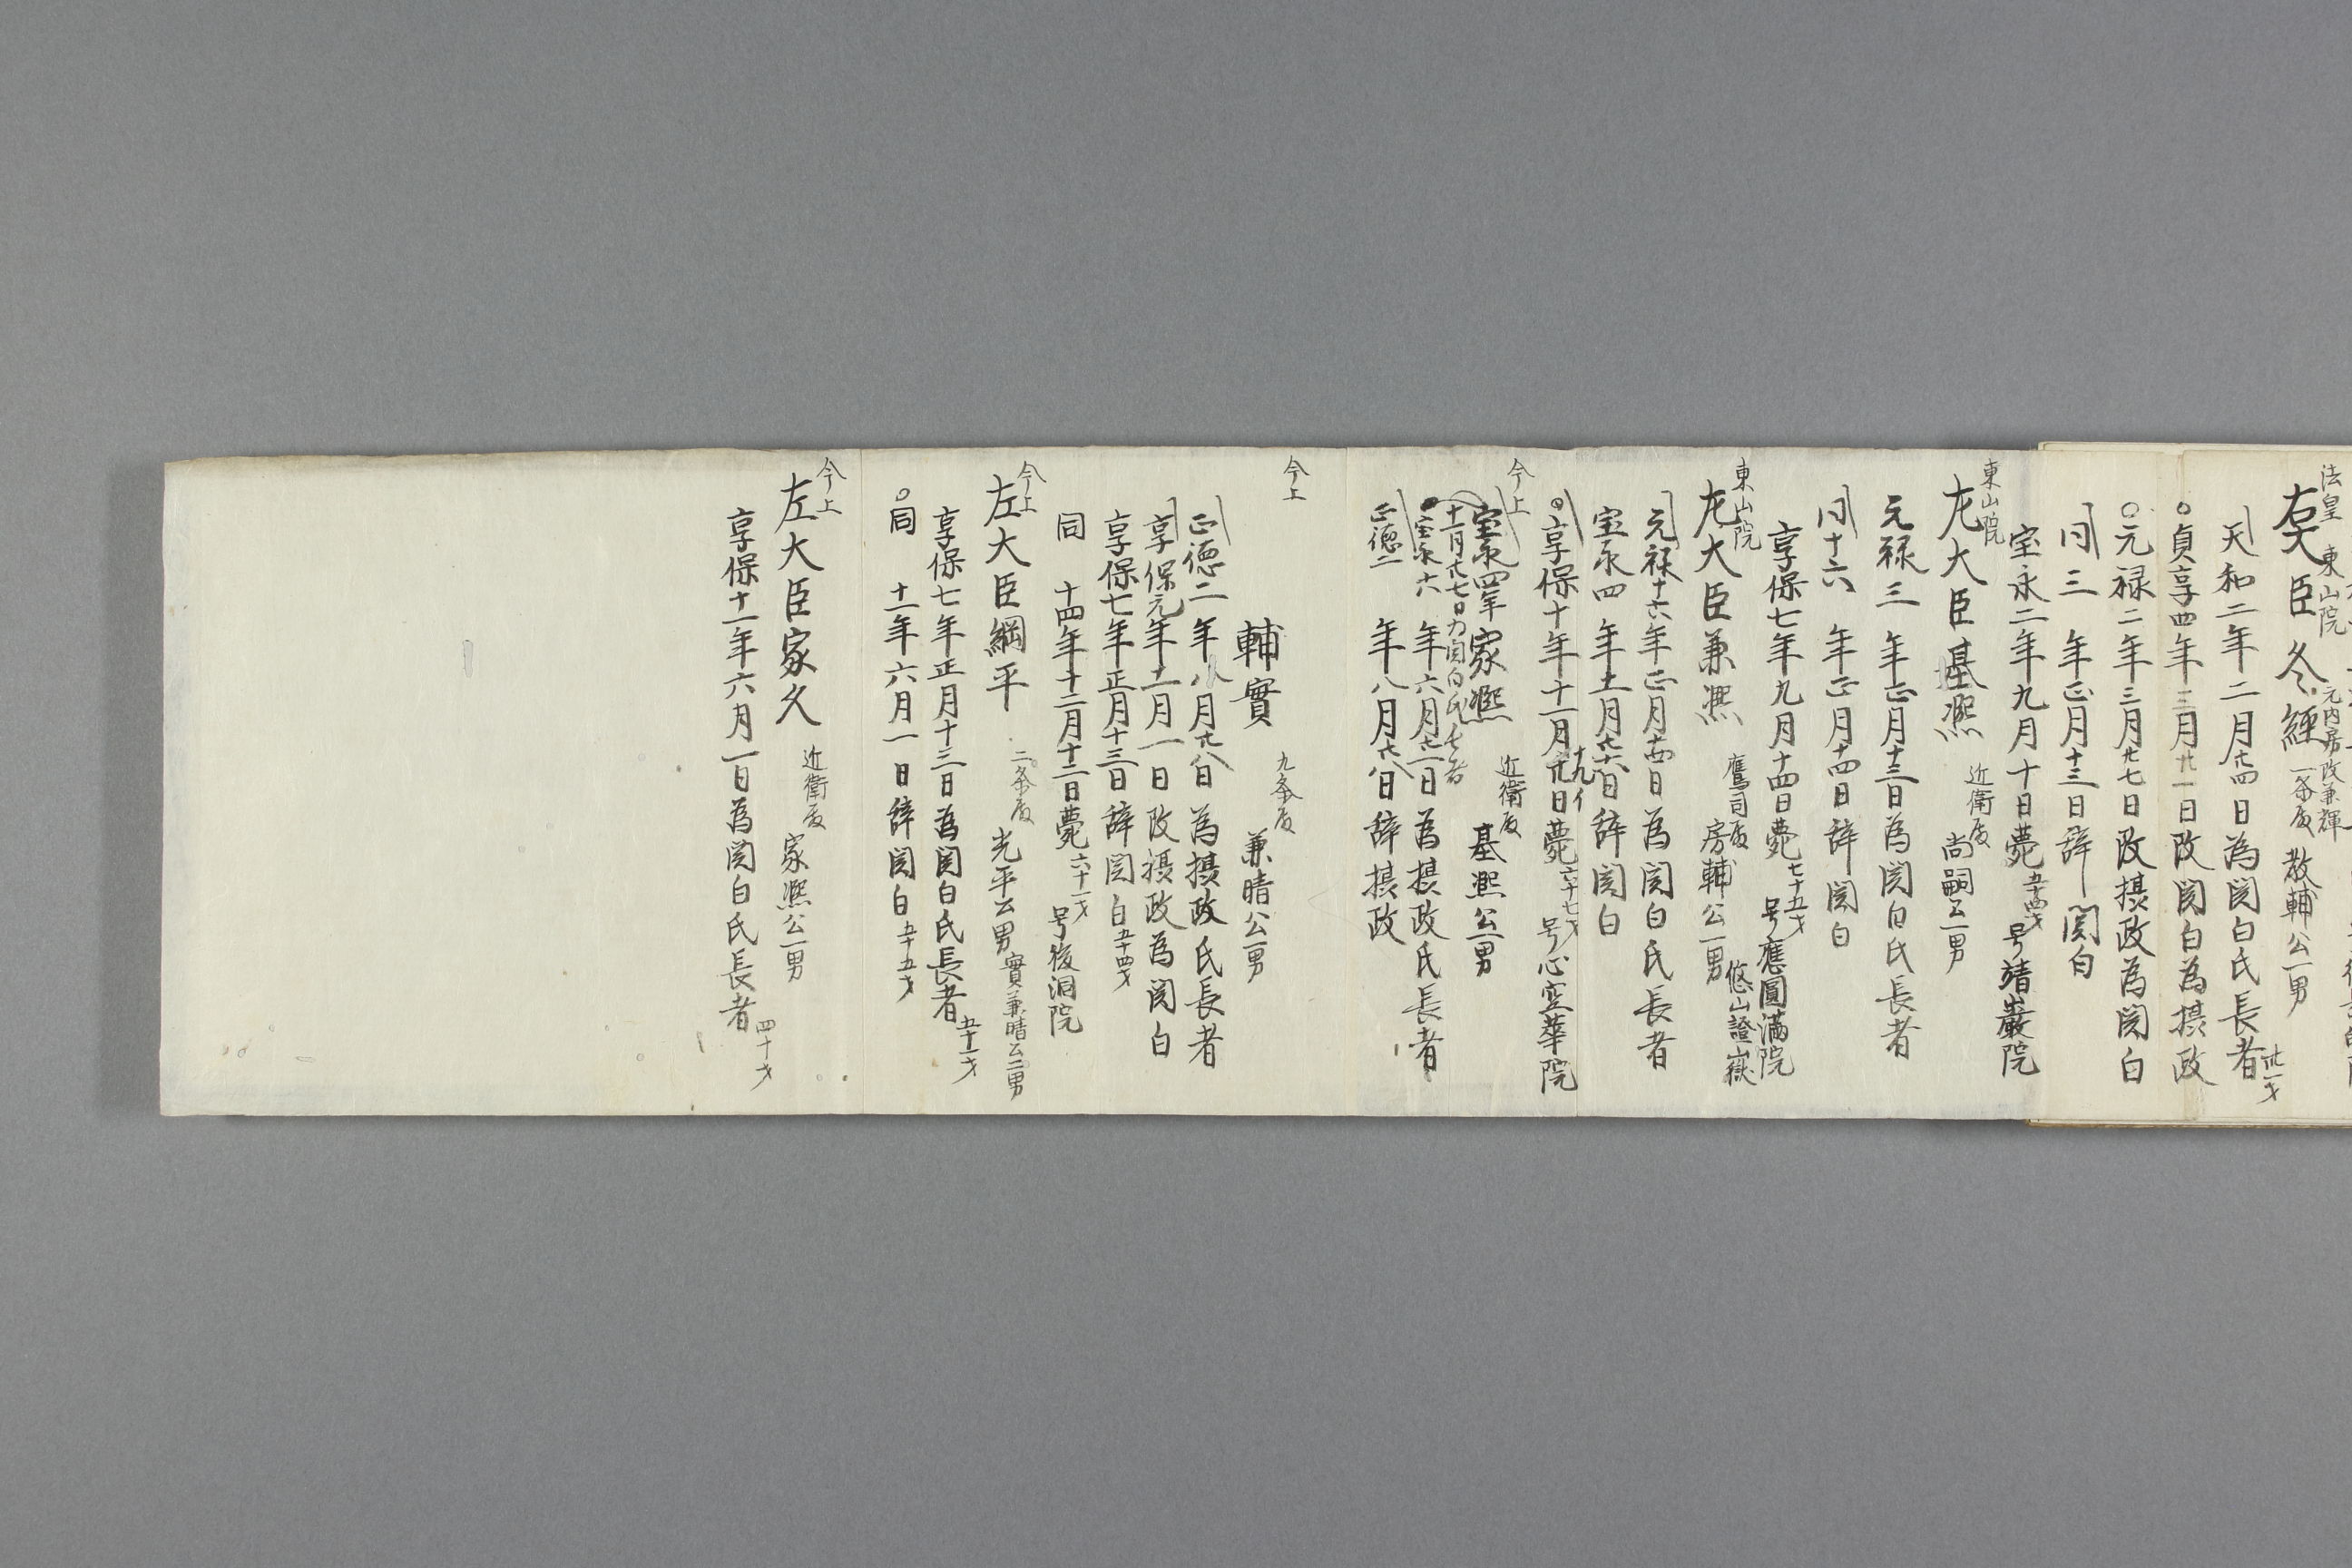 法皇 東山院
右大臣冬經 一条殿 教輔公一男
元内房改兼輝
天和二年二月廿四日為関白氏長者 卅一才
○貞享四年三月廿一日改関白為摂政
○元禄二年三月廿七日改摂政為関白
同三 年正月十三日辞関白
宝永二年九月十日薨 五十四才 号靖巖院
東山院
左大臣基熙 近衛殿 尚嗣公一男
元禄三 年正月十三日為関白氏長者
同十六 年正月十四日辞関白
享保七年九月十四日薨 七十五才 号應圓滿院
悠山證嶽
東山院
左大臣兼熙 鷹司殿 房輔公一男
元禄十六年正月十四日為関白氏長者
宝永四 年十一月廿六日辞関白
○享保十年十一月廿日薨 六十七才 号心空華院
十九イ
今上
家熙 近衛殿 基熙公一男
宝永四年
十一月廿七日为関白氏長者
宝永六 年六月廿一日為摂政氏長者
正徳二 年八月廿八日辞摂政
今上
輔實 九条殿 兼晴公一男
正徳二年八月廿八日為摂政氏長者
享保元年十一月一日改摂政為関白
享保七年正月十三日辞関白 五十四才
同 十四年十二月十二日薨 六十一才 号後洞院
今上
左大臣綱平 二条殿 光平公男 實兼晴公二男
享保七年正月十三日為関白氏長者 五十一才
○同 十一年六月一日辞関白 五十五才
今上
左大臣家久 近衛殿 家熙公一男
享保十一年六月一日為関白氏長者 四十才